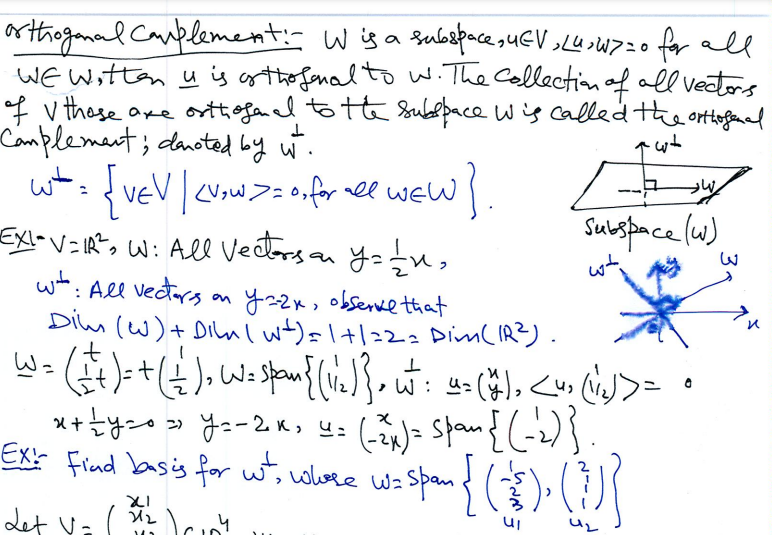 orthogonal Complement:- W is a subspace, u∈V, <u,w>=0 for all
w∈W, then u is orthogonal to W. The collection of all vectors
of V those are orthogonal to the subspace W is called the orthogonal
Complement; denoted by W^⊥.
W^⊥ = {v∈V | <v,w>=0, for all w∈W}.
W^⊥
W
Subspace (W)
EX:- V=ℝ², W: All Vectors on y=1/2 x,
W^⊥: All vectors on y=-2x, observe that
Dim(W)+Dim(W^⊥)=1+1=2=Dim(ℝ²).
W^⊥
y
W
x
W=(t 1/2t)=t(1 1/2), W=span{(1 1/2)}, W^⊥: u=(x y), <u,(1 1/2)>= 0
x+1/2y=0 ⇒ y=-2x, u=(x -2x)=span{(1 -2)}.
EX:- Find basis for W^⊥, where W=span{(1 -5 2 3), (2 1 1 1)}
u1 u2
Let V=(x1 x2